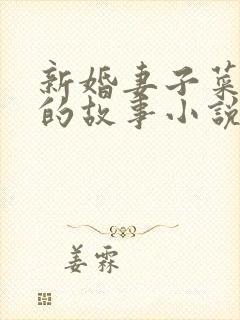 新婚妻子菜
的故事小說
姜霖